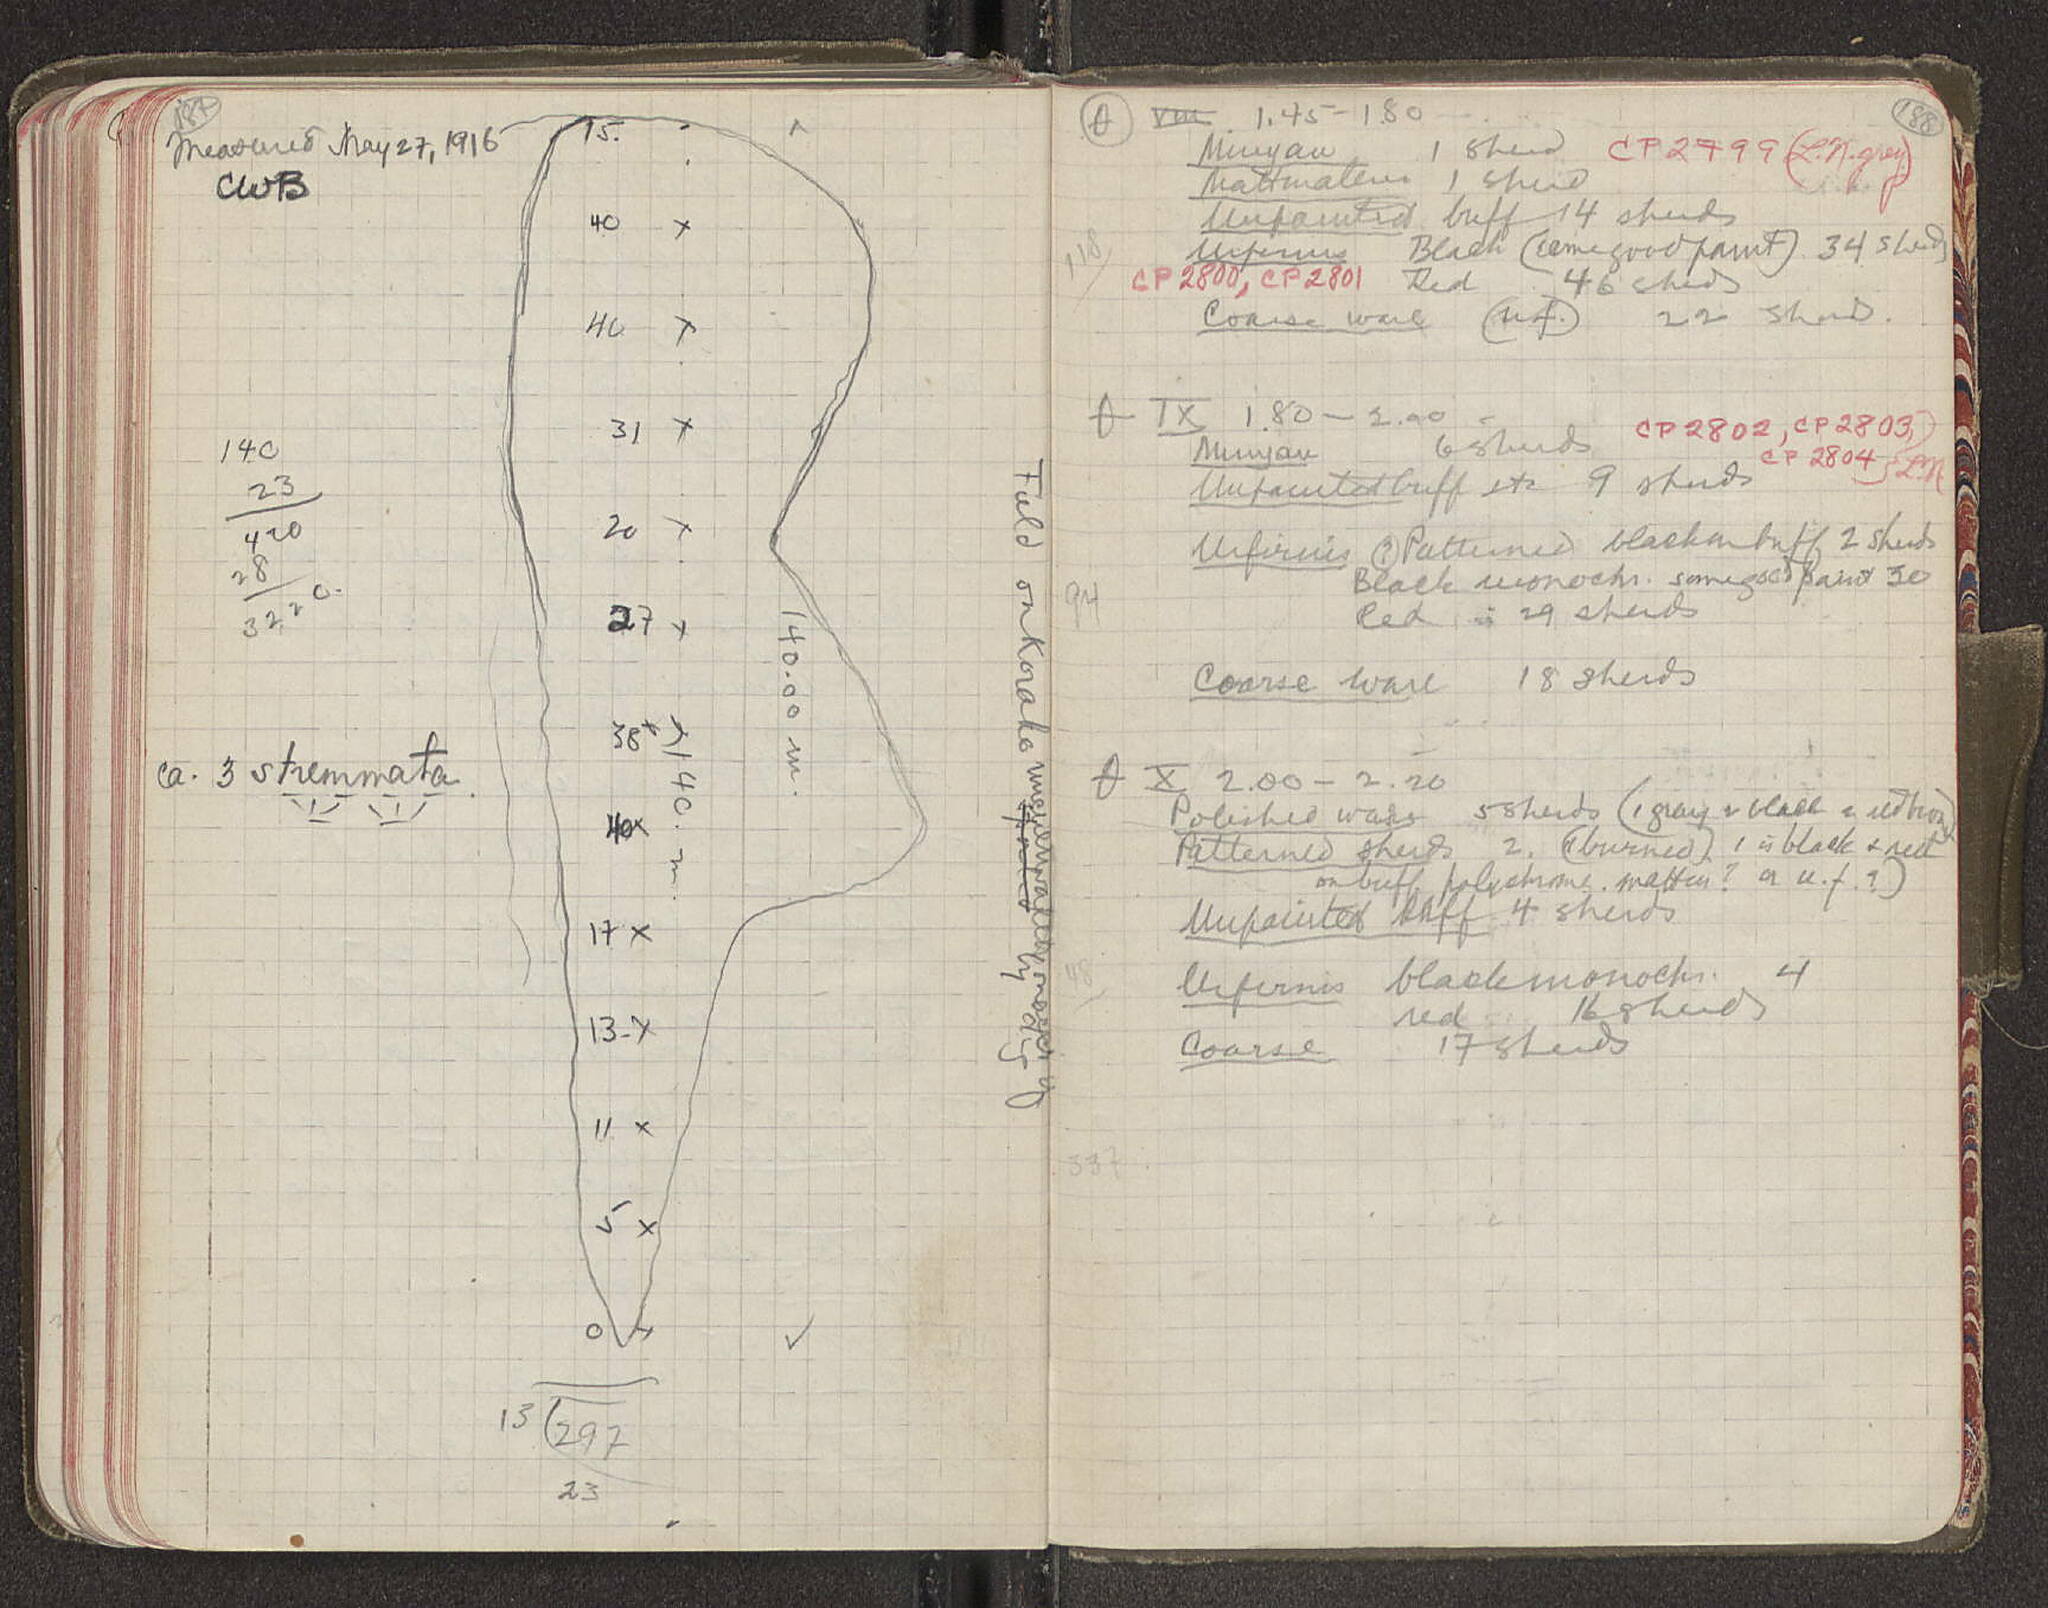 187
Measured May 27, 1916
CWB
15.
40
40
31
20
27
38
40
17
13
11
5
0
140
23
420
28
3220.
ca. 3 stremmata
140.00 m.
140. m.
Field on Korako
13 297
23
188
θ VIII 1.45-1.80
Minyan 1 sherd CP2799 (L.N. grey)
Mattmalerei 1 sherd
Unpainted buff 14 sherds
118
Urfirnis Black (some good paint) 34 sherds
CP2800, CP2801 Red 46 sherds
Coarse ware (u.f.) 22 sherds.
θ IX 1.80-2.00
Minyan 6 sherds CP2802, CP2803,
CP2804 } L.N
Unpainted buff etc 9 sherds
Urfirnis (?) Patterned black on buff 2 sherds
94
Black monochr. some good paint 30
Red 29 sherds
Coarse ware 18 sherds
θ X 2.00-2.20
Polished ware 5 sherds (1 gray 2 black 2 red
Patterned sherds 2. (1 burned) 1 is black & red
on buff polychrome. matt or u.f.?)
Unpainted buff 4 sherds
48
Urfirnis black monochr. 4
red 16 sherds
Coarse 17 sherds
337